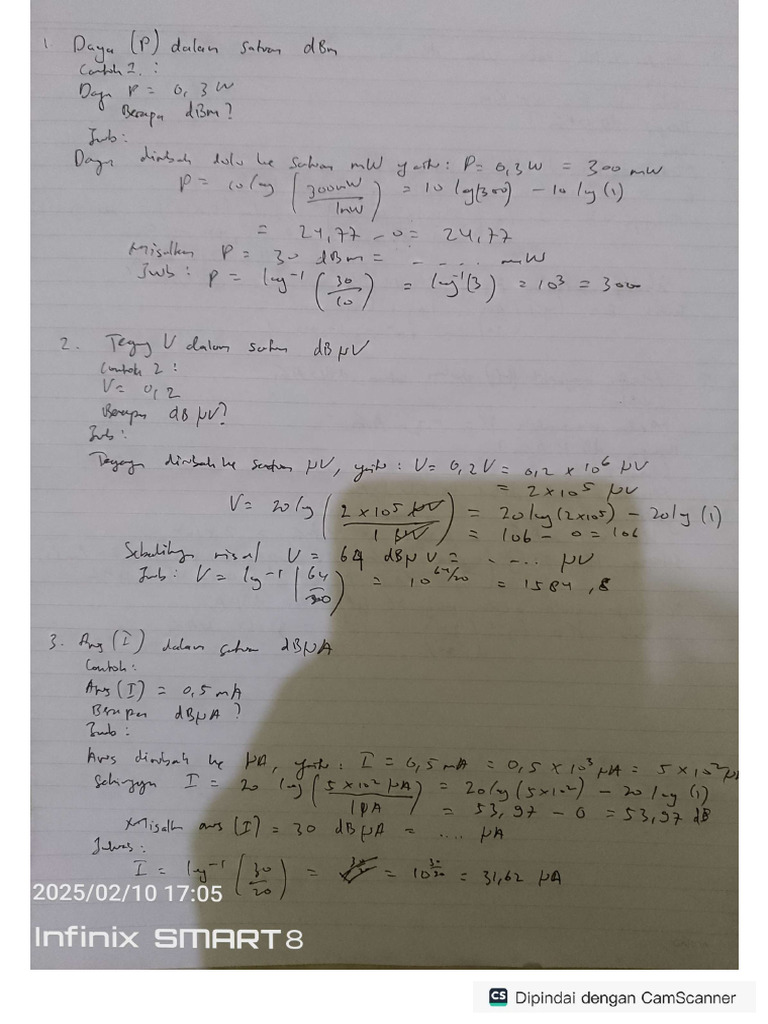 1. Daya (P) dalam satuan dBm
Contoh 1. :
Daya P = 0,3 W
Berapa dBm?
Jwb :
Daya dirubah dulu ke satuan mW yaitu : P = 0,3 W = 300 mW
P = 10 log (300mW / 1mW) = 10 log(300) - 10 log (1)
= 24,77 - 0 = 24,77
Misalkan P = 30 dBm = - .... mW
Jwb : P = log⁻¹ (30/10) = log⁻¹(3) = 10³ = 3000
2. Tegang V dalam satuan dBµV
Contoh 2 :
V = 0,2
Berapa dBµV?
Jwb :
Tegangan dirubah ke satuan µV, yaitu : V = 0,2V = 0,2 x 10⁶ µV
= 2 x 10⁵ µV
V = 20 log (2 x 10⁵ µV / 1 µV) = 20 log (2x10⁵) - 20 log (1)
= 106 - 0 = 106
Sebaliknya misal V = 64 dBµV = - ... µV
Jwb : V = log⁻¹ (64/20) = 10^64/20 = 1584,8
3. Arus (I) dalam satuan dBµA
Contoh :
Arus (I) = 0,5 mA
Berapa dBµA ?
Jwb :
Arus dirubah ke µA, yaitu : I = 0,5 mA = 0,5 x 10³ µA = 5 x 10² µA
Sehingga I = 20 log (5 x 10² µA / 1µA) = 20 log (5x10²) - 20 log (1)
= 53,97 - 0 = 53,97 dB
Misalkan arus (I) = 30 dBµA = .... µA
Jawab :
I = log⁻¹ (30/20) = = 10^30/20 = 31,62 µA
2025/02/10 17:05
Infinix SMART 8
CS Dipindai dengan CamScanner